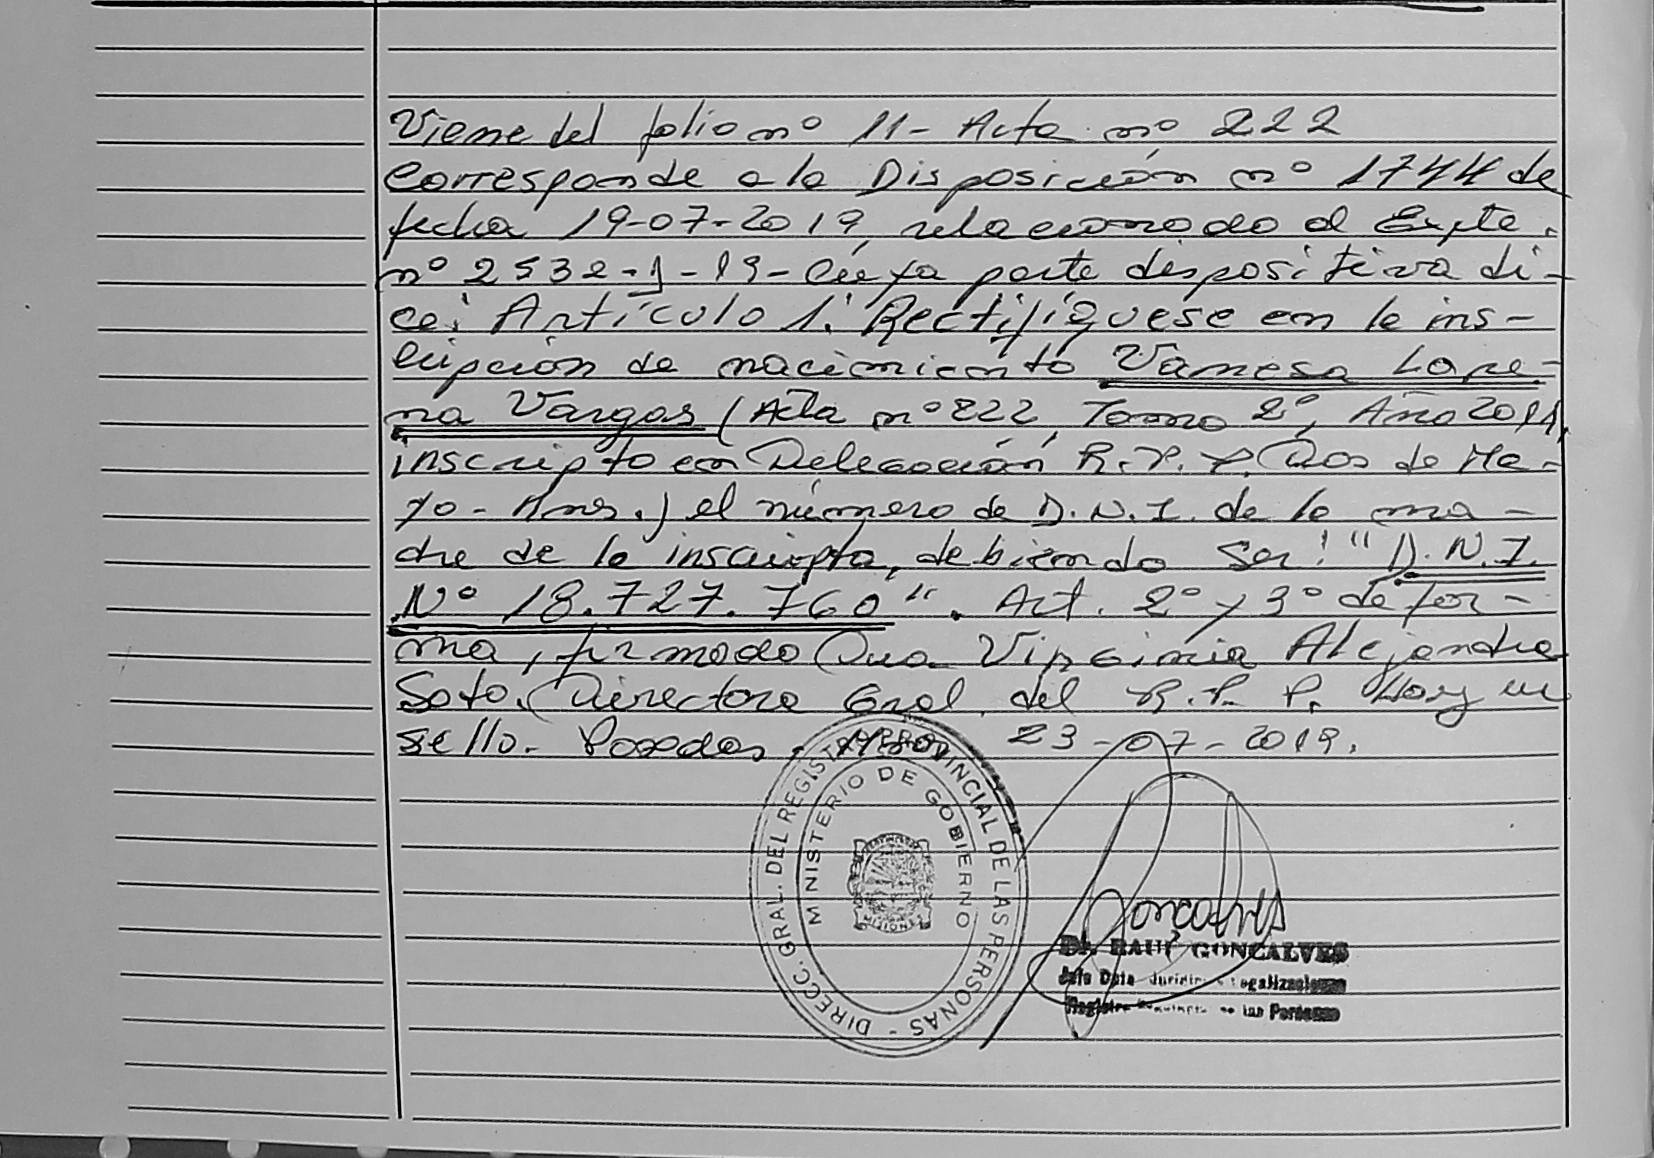 Viene del folio nº 11- Acta nº 222
Corresponde a la Disposición nº 1744 de
fecha 19-07-2019, relacionado al Expte.
nº 2532-J-19- Cuya parte dispositiva di-
ce: Artículo 1: Rectifíquese en la ins-
cripción de nacimiento Vanesa Lore-
na Vargas (Acta nº 222, Tomo 2º, Año 2011,
inscripto en Delegación R.P.P. Dos de Ma-
yo- Mnes.) el número de D.N.I. de la ma-
dre de la inscripta, debiendo ser: "D.N.I.
Nº 18.727.760". Art. 2º y 3º de for-
ma, firmado Dra. Virginia Alejandra
Soto. Directora Gral. del R.P.P. Hay un
sello. Posadas, 23-07-2019.
DIRECC. GRAL. DEL REGISTRO PROVINCIAL DE LAS PERSONAS -
MINISTERIO DE GOBIERNO
MISIONES
Goncalves
Dr. RAUL GONCALVES
Jefe Dpto. Legalizaciones
Registro de las Personas